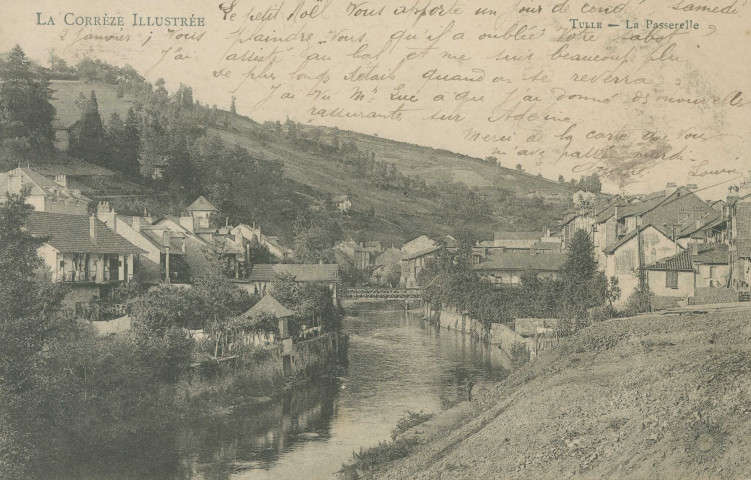 LA CORRÈZE ILLUSTRÉE
TULLE — La Passerelle
Le petit Noël Vous apporte un jour de congé Samedi
2 Janvier; Vous plaindrez-Vous qu'il a oublié Votre sabot?
J'ai assisté au bal et me suis beaucoup plu
De plus longs détails quand on se reverra
J'ai Vu Mr Luc à qui j'ai donné des nouvelles
rassurante sur
Merci de la carte que vous
m'avez